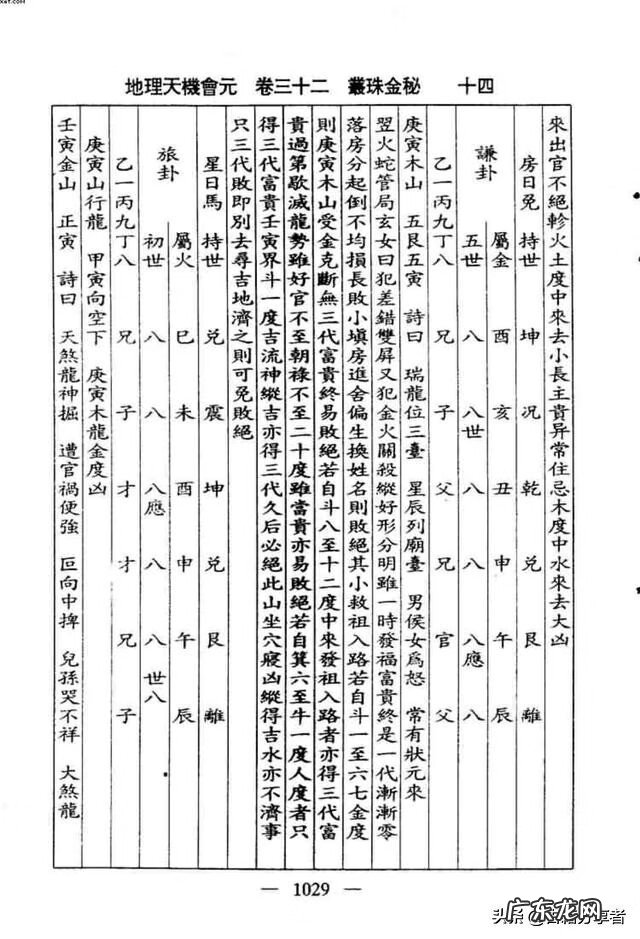 地理天機會元　卷三十二　叢珠金秘　十四
來出官不絕軫火土度中來去小長主貴异常住忌木度中水來去大凶
房日兔　持世　坤　况　乾　兑　艮　離
謙卦
屬金　酉　亥　丑　申　午　辰
五世　八　八世　八　八　八應　八
乙一丙九丁八　兄　子　父　兄　官　父
庚寅木山　五艮五寅　詩曰　瑞龍位三臺　星辰列廟臺　男侯女爲怒　常有狀元來
翌火蛇管局玄女曰犯差錯雙屏又犯金火關殺縱好形分明雖一時發福富貴終是一代漸漸零
落房分起倒不均損長敗小填房進舍偏生換姓名則敗絕其小救祖入路若自斗一至六七金度
則庚寅木山受金克斷無三代富貴終易敗絕若自斗八至十二度中來發祖入路者亦得三代富
貴過第歇滅龍勢雖好官不至朝祿不至二十度雖當貴亦易敗絕若自箕六至牛一度人度者只
得三代富貴壬寅界斗一度吉流神縱吉亦得三代久后必絕此山坐穴寢凶縱得吉水亦不濟事
只三代敗即別去尋吉地濟之則可免敗絕
星日馬　持世　兑　震　坤　兑　艮　離
旅卦
屬火　巳　未　酉　申　午　辰
初世　八　八　八應　八　八　世八
乙一丙九丁八　兄　子　才　才　兄　子
庚寅山行龍　甲寅向空下　庚寅木龍金度凶
壬寅金山　正寅　詩曰　天煞龍神掘　遭官禍便強　叵向中捭　兒孫哭不祥　大煞龍
— 1029 —
广东龙网